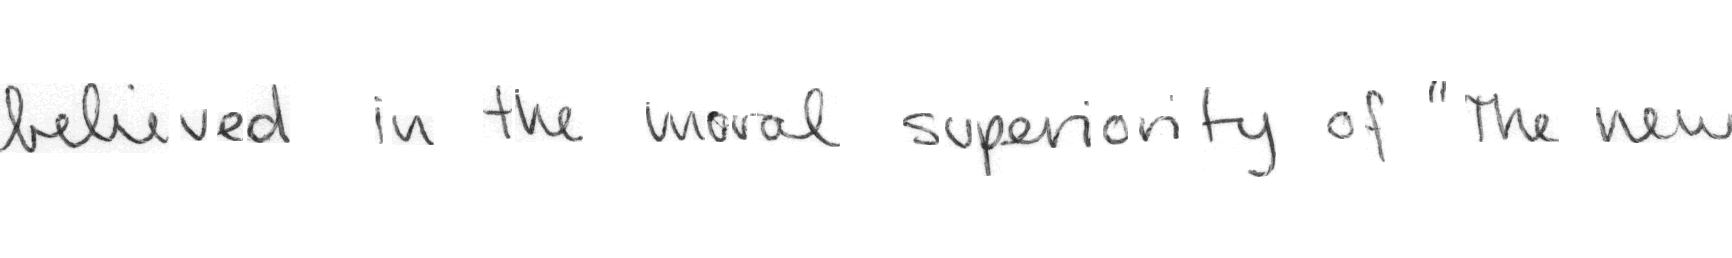 believed in the moral superiority of "The new